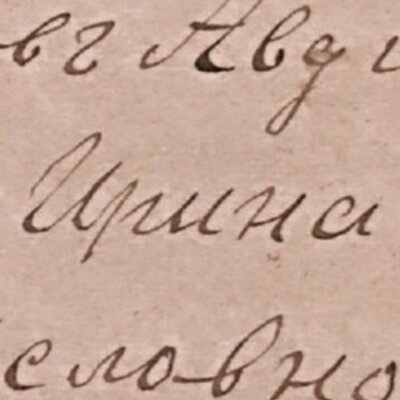 въ Авд
Ирина
словно